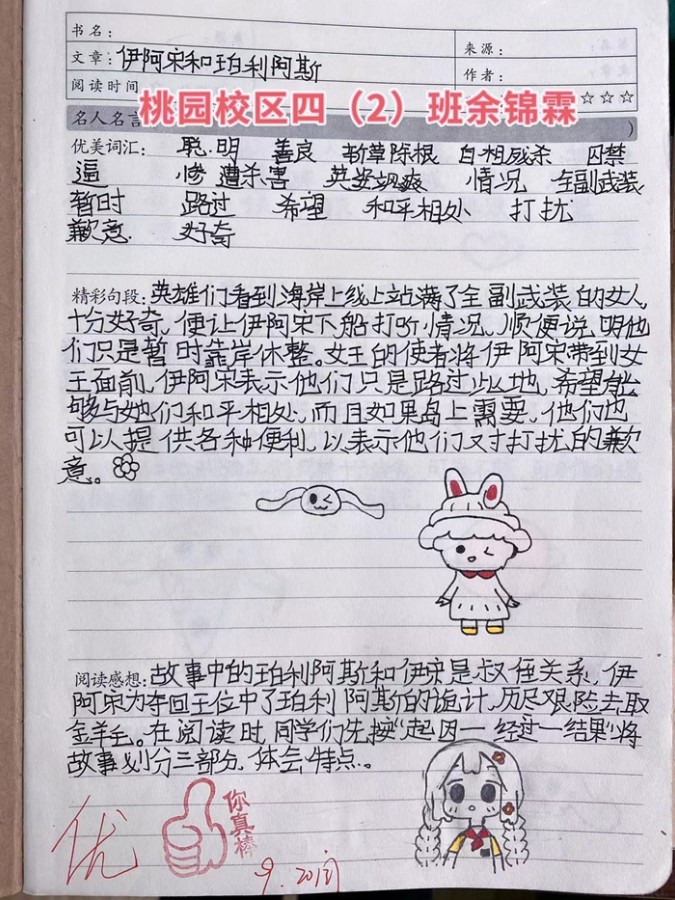 书名：
来源：
文章：伊阿宋和珀利阿斯
作者：
阅读时间
☆☆☆
桃园校区四（2）班余锦霖
名人名言 )
优美词汇： 聪明 善良 斩草除根 自相残杀 囚禁
逼 惨遭杀害 英姿飒爽 情况 全副武装
暂时 路过 希望 和平相处 打扰
歉意 好奇
精彩句段：英雄们看到海岸上线上站满了全副武装的女人，
十分好奇，便让伊阿宋下船打听情况，顺便说明他
们只是暂时靠岸休整。女王的使者将伊阿宋带到女
王面前，伊阿宋表示他们只是路过此地，希望能
够与她们和平相处，而且如果岛上需要，他们也
可以提供各种便利，以表示他们对打扰的歉
意。
阅读感想：故事中的珀利阿斯和伊宋是叔侄关系，伊
阿宋为夺回王位中了珀利阿斯的诡计，历尽艰险去取
金羊毛。在阅读时，同学们先按“起因一经过一结果”将
故事划分三部分，体会特点。
优
你真棒
9.20阅